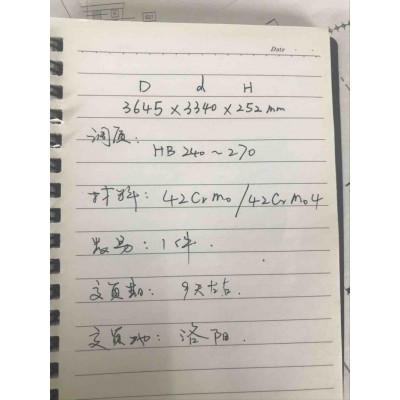 Date
D d H
3645×3340×252mm
调质:
HB240~270
材料: 42CrMo/42CrMo4
数量: 1件.
交货期: 9天左右.
交货地: 洛阳.